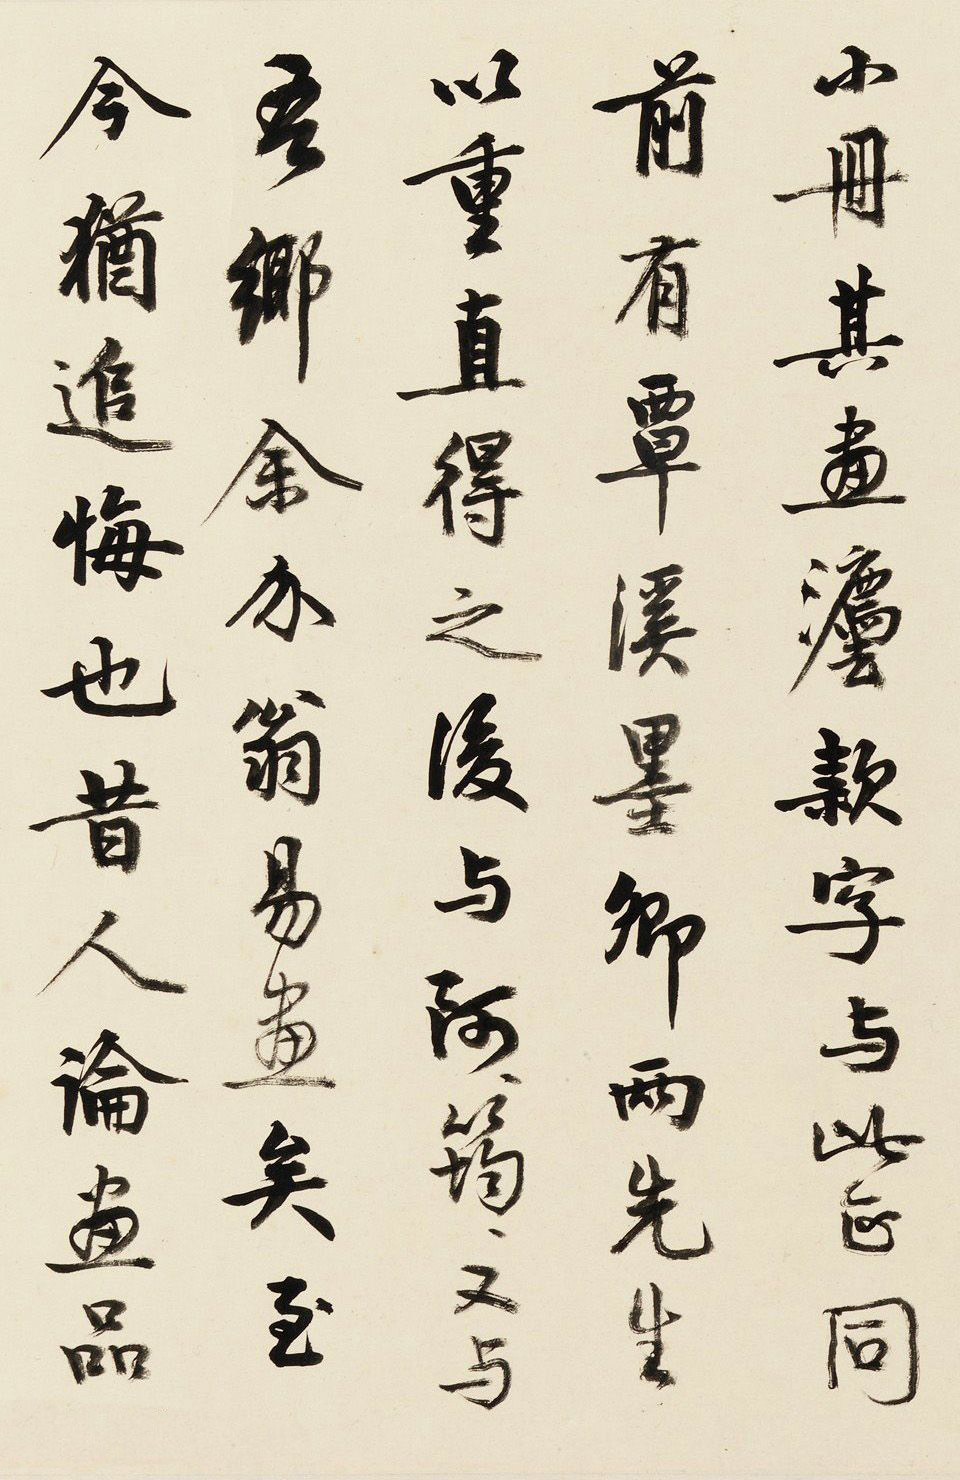 小冊其畫灋款字与此正同
前有覃溪墨卿兩先生
以重直得之後与阿〻筠〻又与
吾鄉余翁易畫矣至
今猶追悔也昔人論畫品